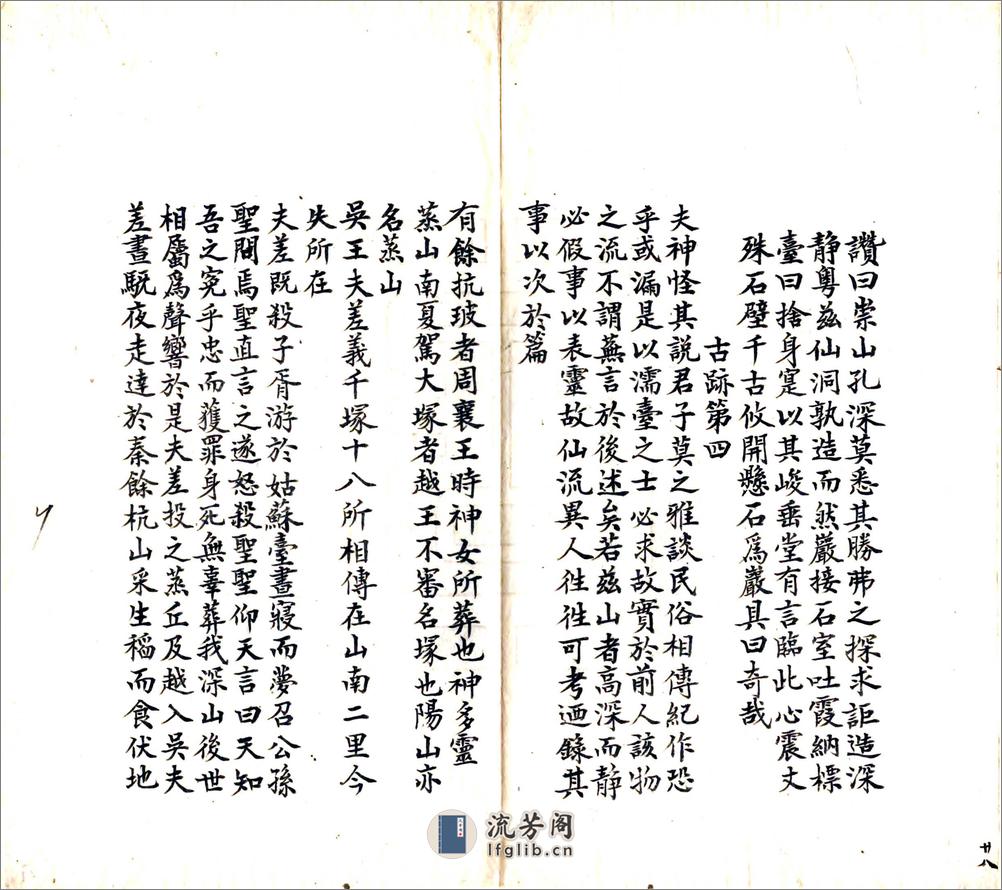 讚曰崇山孔深莫悉其勝弗之探求詎造深
靜粵茲仙洞孰造而然巖接石室吐霞納標
臺曰捨身寔以其峻垂堂有言臨此心震丈
殊石壁千古攸開懸石爲巖具曰奇哉
古跡第四
夫神怪其說君子莫之雅談民俗相傳紀作恐
乎或漏是以濡臺之士必求故實於前人該物
之流不謂蕪言於後述矣若茲山者高深而靜
必假事以表靈故仙流異人徃徃可考迺錄其
事以次於篇
有餘抗玻者周襄王時神女所葬也神多靈
蒸山南夏駕大塚者越王不審名塚也陽山亦
名蒸山
吳王夫差義千塚十八所相傳在山南二里今
失所在
夫差既殺子胥游於姑蘇臺晝寢而夢召公孫
聖問焉聖直言之遂怒殺聖聖仰天言曰天知
吾之寃乎忠而獲罪身死無辜葬我深山後世
相屬爲聲響於是夫差投之蒸丘及越入吳夫
差晝馳夜走達於秦餘杭山采生稻而食伏地
廿八
流芳阁
lfglib.cn